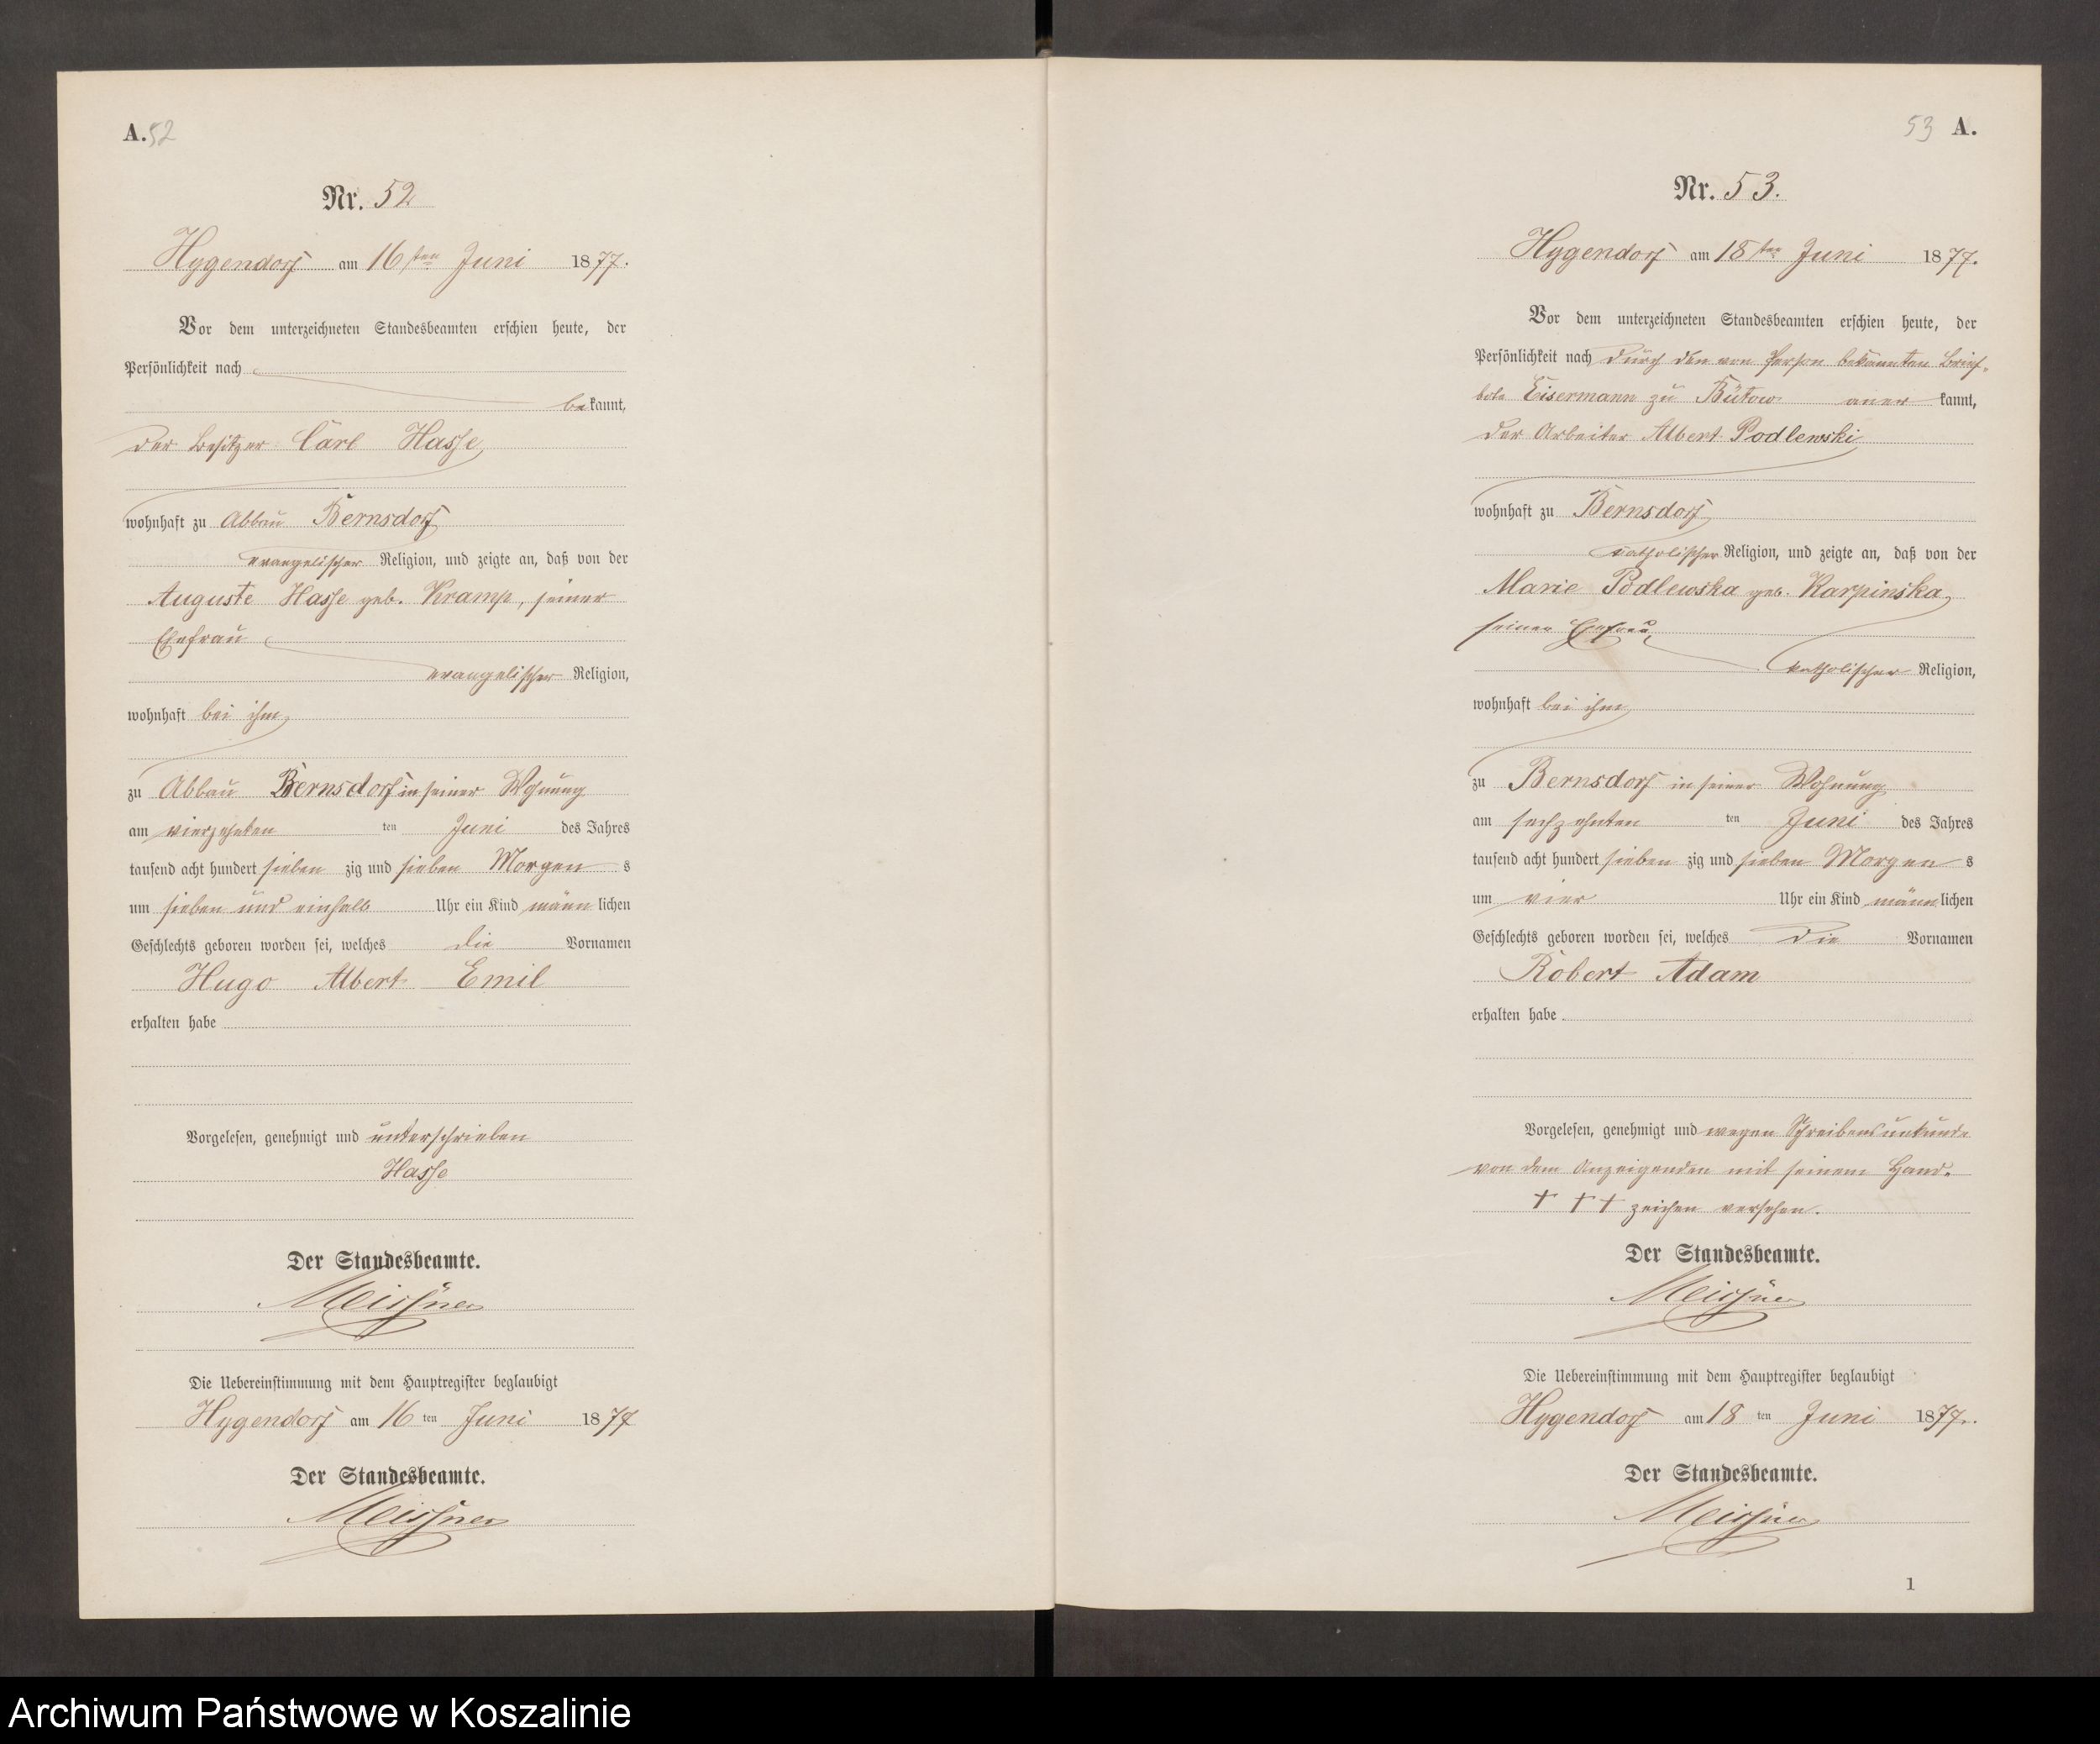 A. 52
Nr. 52
Hygendorf am 16 ten Juni 1877.
Vor dem unterzeichneten Standesbeamten erschien heute, der
Persönlichkeit nach
bekannt,
der Besitzer Carl Hasse,
wohnhaft zu Abbau Bernsdorf,
evangelischer Religion, und zeigte an, daß von der
Auguste Hasse geb. Kramp, seiner
Ehefrau
evangelischer Religion,
wohnhaft bei ihm,
zu Abbau Bernsdorf in seiner Wohnung
am vierzehnten ten Juni des Jahres
tausend acht hundert sieben zig und sieben Morgen s
um sieben und einhalb Uhr ein Kind männ lichen
Geschlechts geboren worden sei, welches die Vornamen
Hugo Albert Emil
erhalten habe
Vorgelesen, genehmigt und unterschrieben
Hasse
Der Standesbeamte.
Meißner
Die Uebereinstimmung mit dem Hauptregister beglaubigt
Hygendorf am 16 ten Juni 1877
Der Standesbeamte.
Meißner
53 A.
Nr. 53.
Hygendorf am 18 ten Juni 1877.
Vor dem unterzeichneten Standesbeamten erschien heute, der
Persönlichkeit nach durch den von Person bekannten Brief-
bote Eisermann zu Bütow aner kannt,
der Arbeiter Albert Podlewski
wohnhaft zu Bernsdorf,
katholischer Religion, und zeigte an, daß von der
Marie Podlewska geb. Karpinska,
seiner Ehefrau,
katholischer Religion,
wohnhaft bei ihm,
zu Bernsdorf in seiner Wohnung
am sechzehnten ten Juni des Jahres
tausend acht hundert sieben zig und sieben Morgen s
um vier Uhr ein Kind männ lichen
Geschlechts geboren worden sei, welches die Vornamen
Robert Adam
erhalten habe
Vorgelesen, genehmigt und wegen Schreibensunkunde
von dem Anzeigenden mit seinem Hand-
+ + + zeichen versehen.
Der Standesbeamte.
Meißner
Die Uebereinstimmung mit dem Hauptregister beglaubigt
Hygendorf am 18 ten Juni 1877.
Der Standesbeamte.
Meißner
1
Archiwum Państwowe w Koszalinie